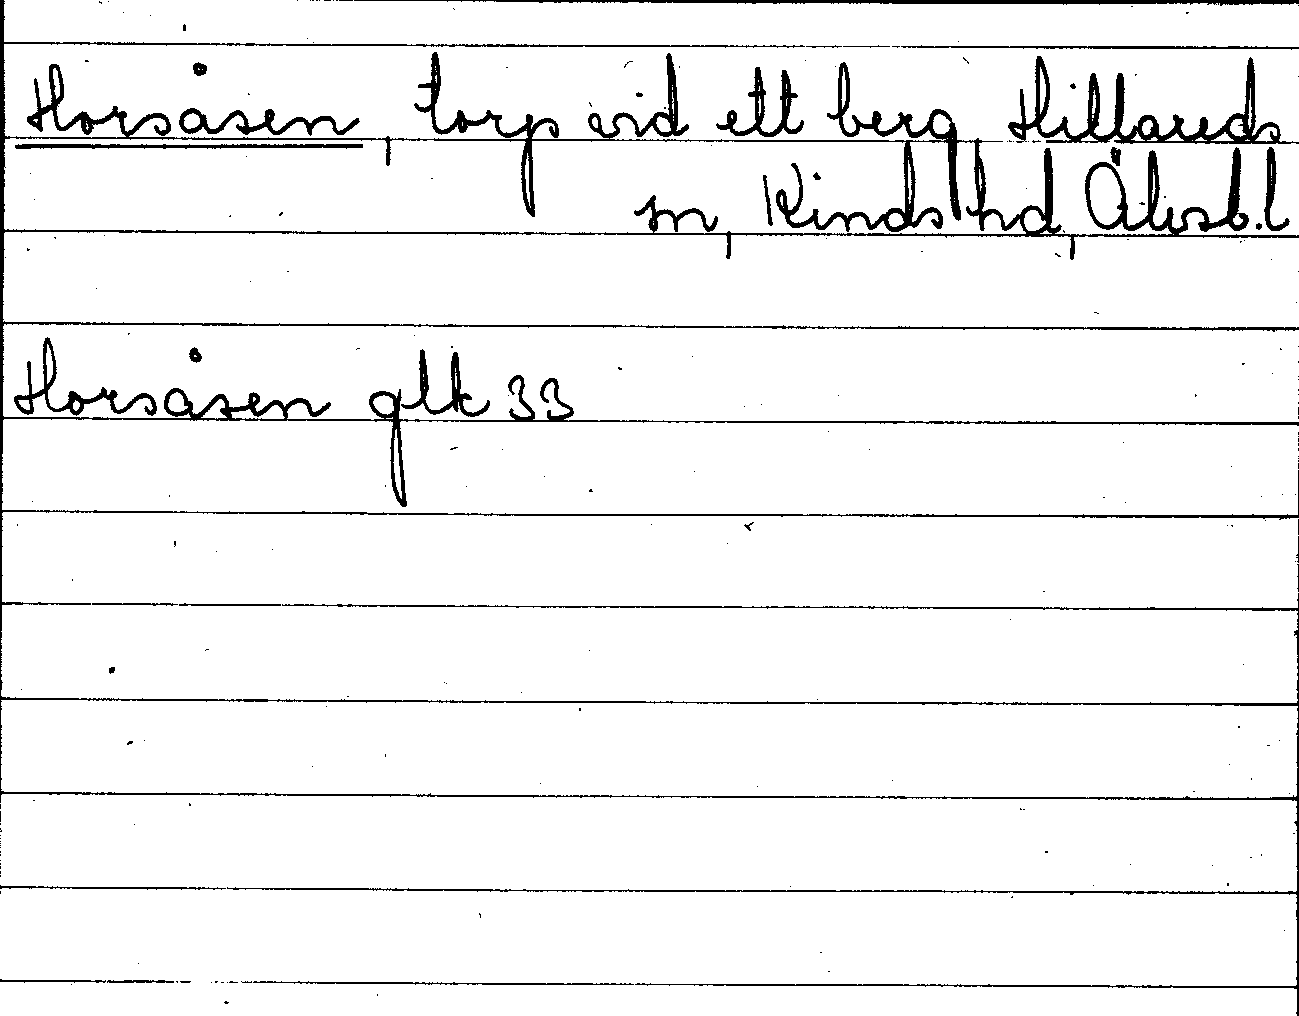 Horsåsen, torp vid ett berg, Hillareds
sn, Kinds hd, Älvsb. l
Horsåsen glk 33